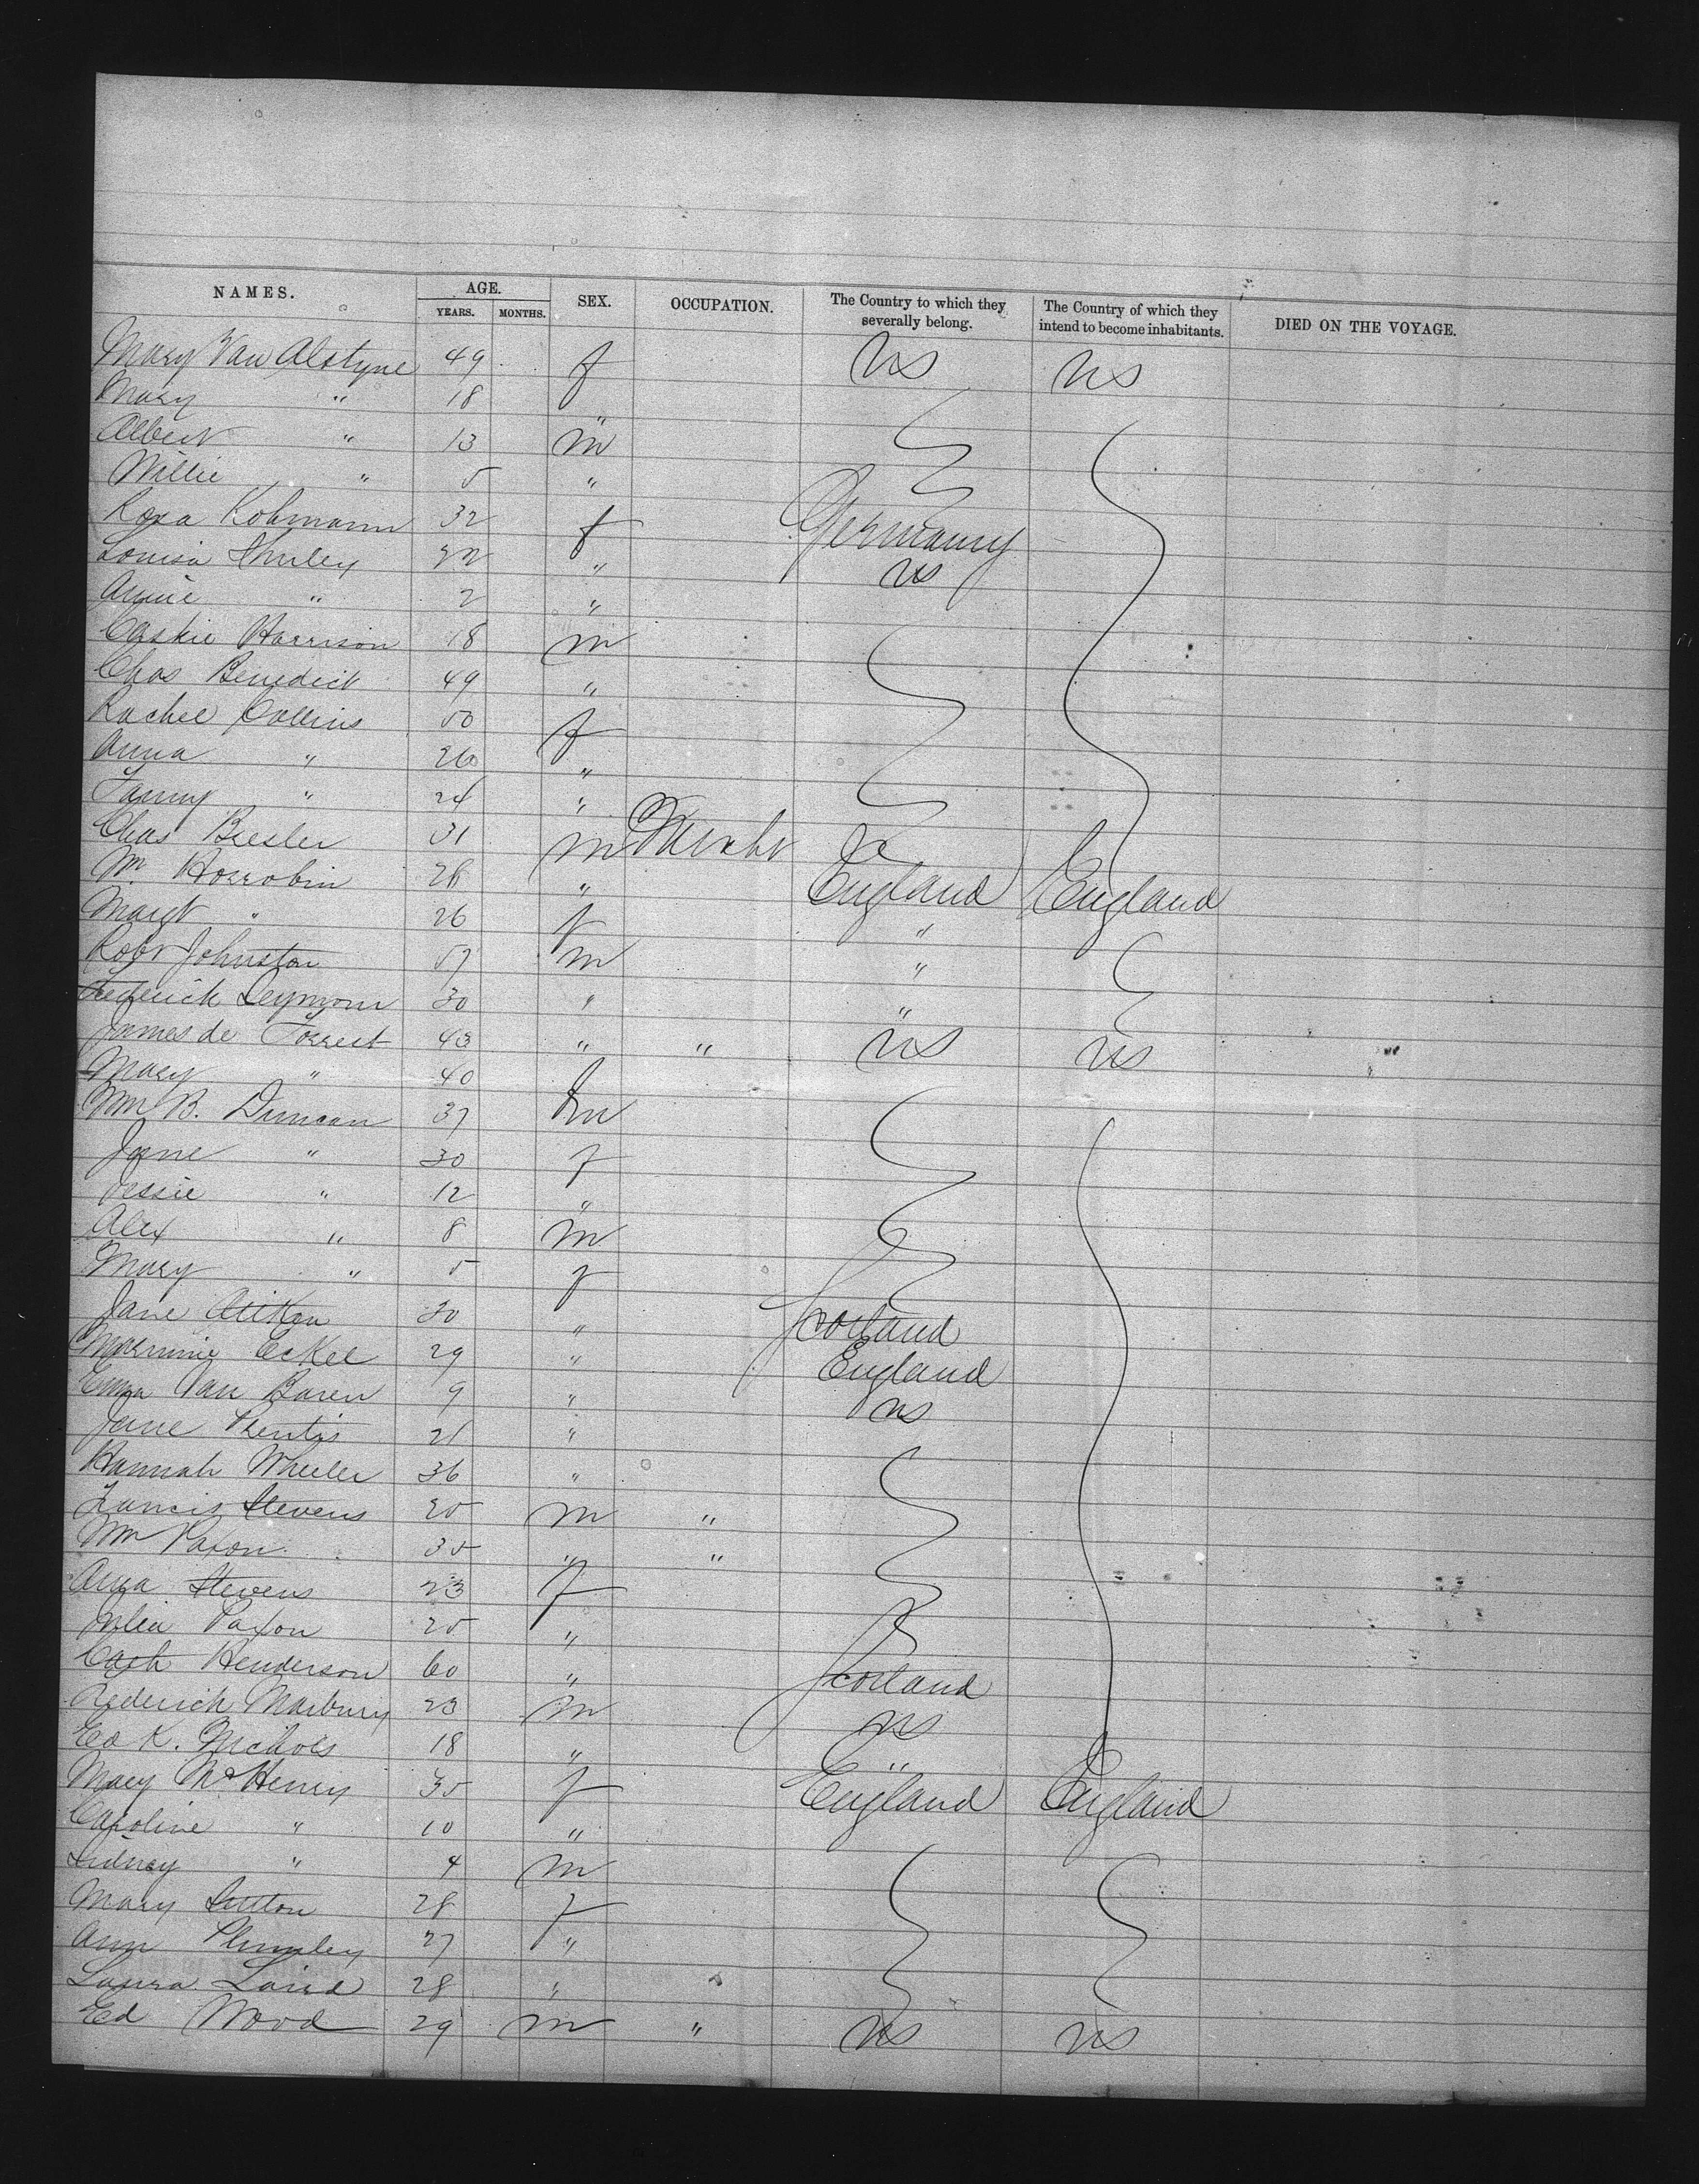 NAMES. AGE. SEX. OCCUPATION. The Country to which they severally belong. The Country of which they intend to become inhabitants. DIED ON THE VOYAGE.
YEARS. MONTHS.
Mary Van Alstyne 49 f US US
Mary " 18 "
Albert " 13 m
Willie " 5 "
Rosa Kohmann 32 f Germany
Louisa Shurley " US
Annie " 2 "
Caskie Harrison 18 m
Chas Benedict 49 "
Rachel Collins 50 f
Anna " 26 "
Fanny " 24 "
Chas Besler 31 m Mercht
Mr Horrobin 28 " England England
Margt " 26 f "
Robt Johnston 57 m "
Frederick Seymour 30 " "
James de Forrest 43 " " US US
Mary " 40 f
Wm B. Duncan 37 m
Jane " 30 f
Jessie " 12 "
Alex " 8 m
Mary " 5 f
Jane Aitken 30 " Scotland
Eckel 29 " England
Emma Van Buren 9 " US
Jane Prentis 21 "
Hannah Wheeler 36 "
Francis Stevens 25 m "
Wm Paxon 35 " "
Anna Stevens 23 f
Julia Paxon 25 "
Cath Henderson 60 " Scotland
Frederick Marbury 23 m US
Ed K. Nichols 18 " "
Mary McHenry 35 f England England
Caroline " 10 "
Sidney " 4 m
Mary Sutton 28 f
Ann Plumley 27 "
Laura Laird 28 "
Ed Wood 29 m " US US